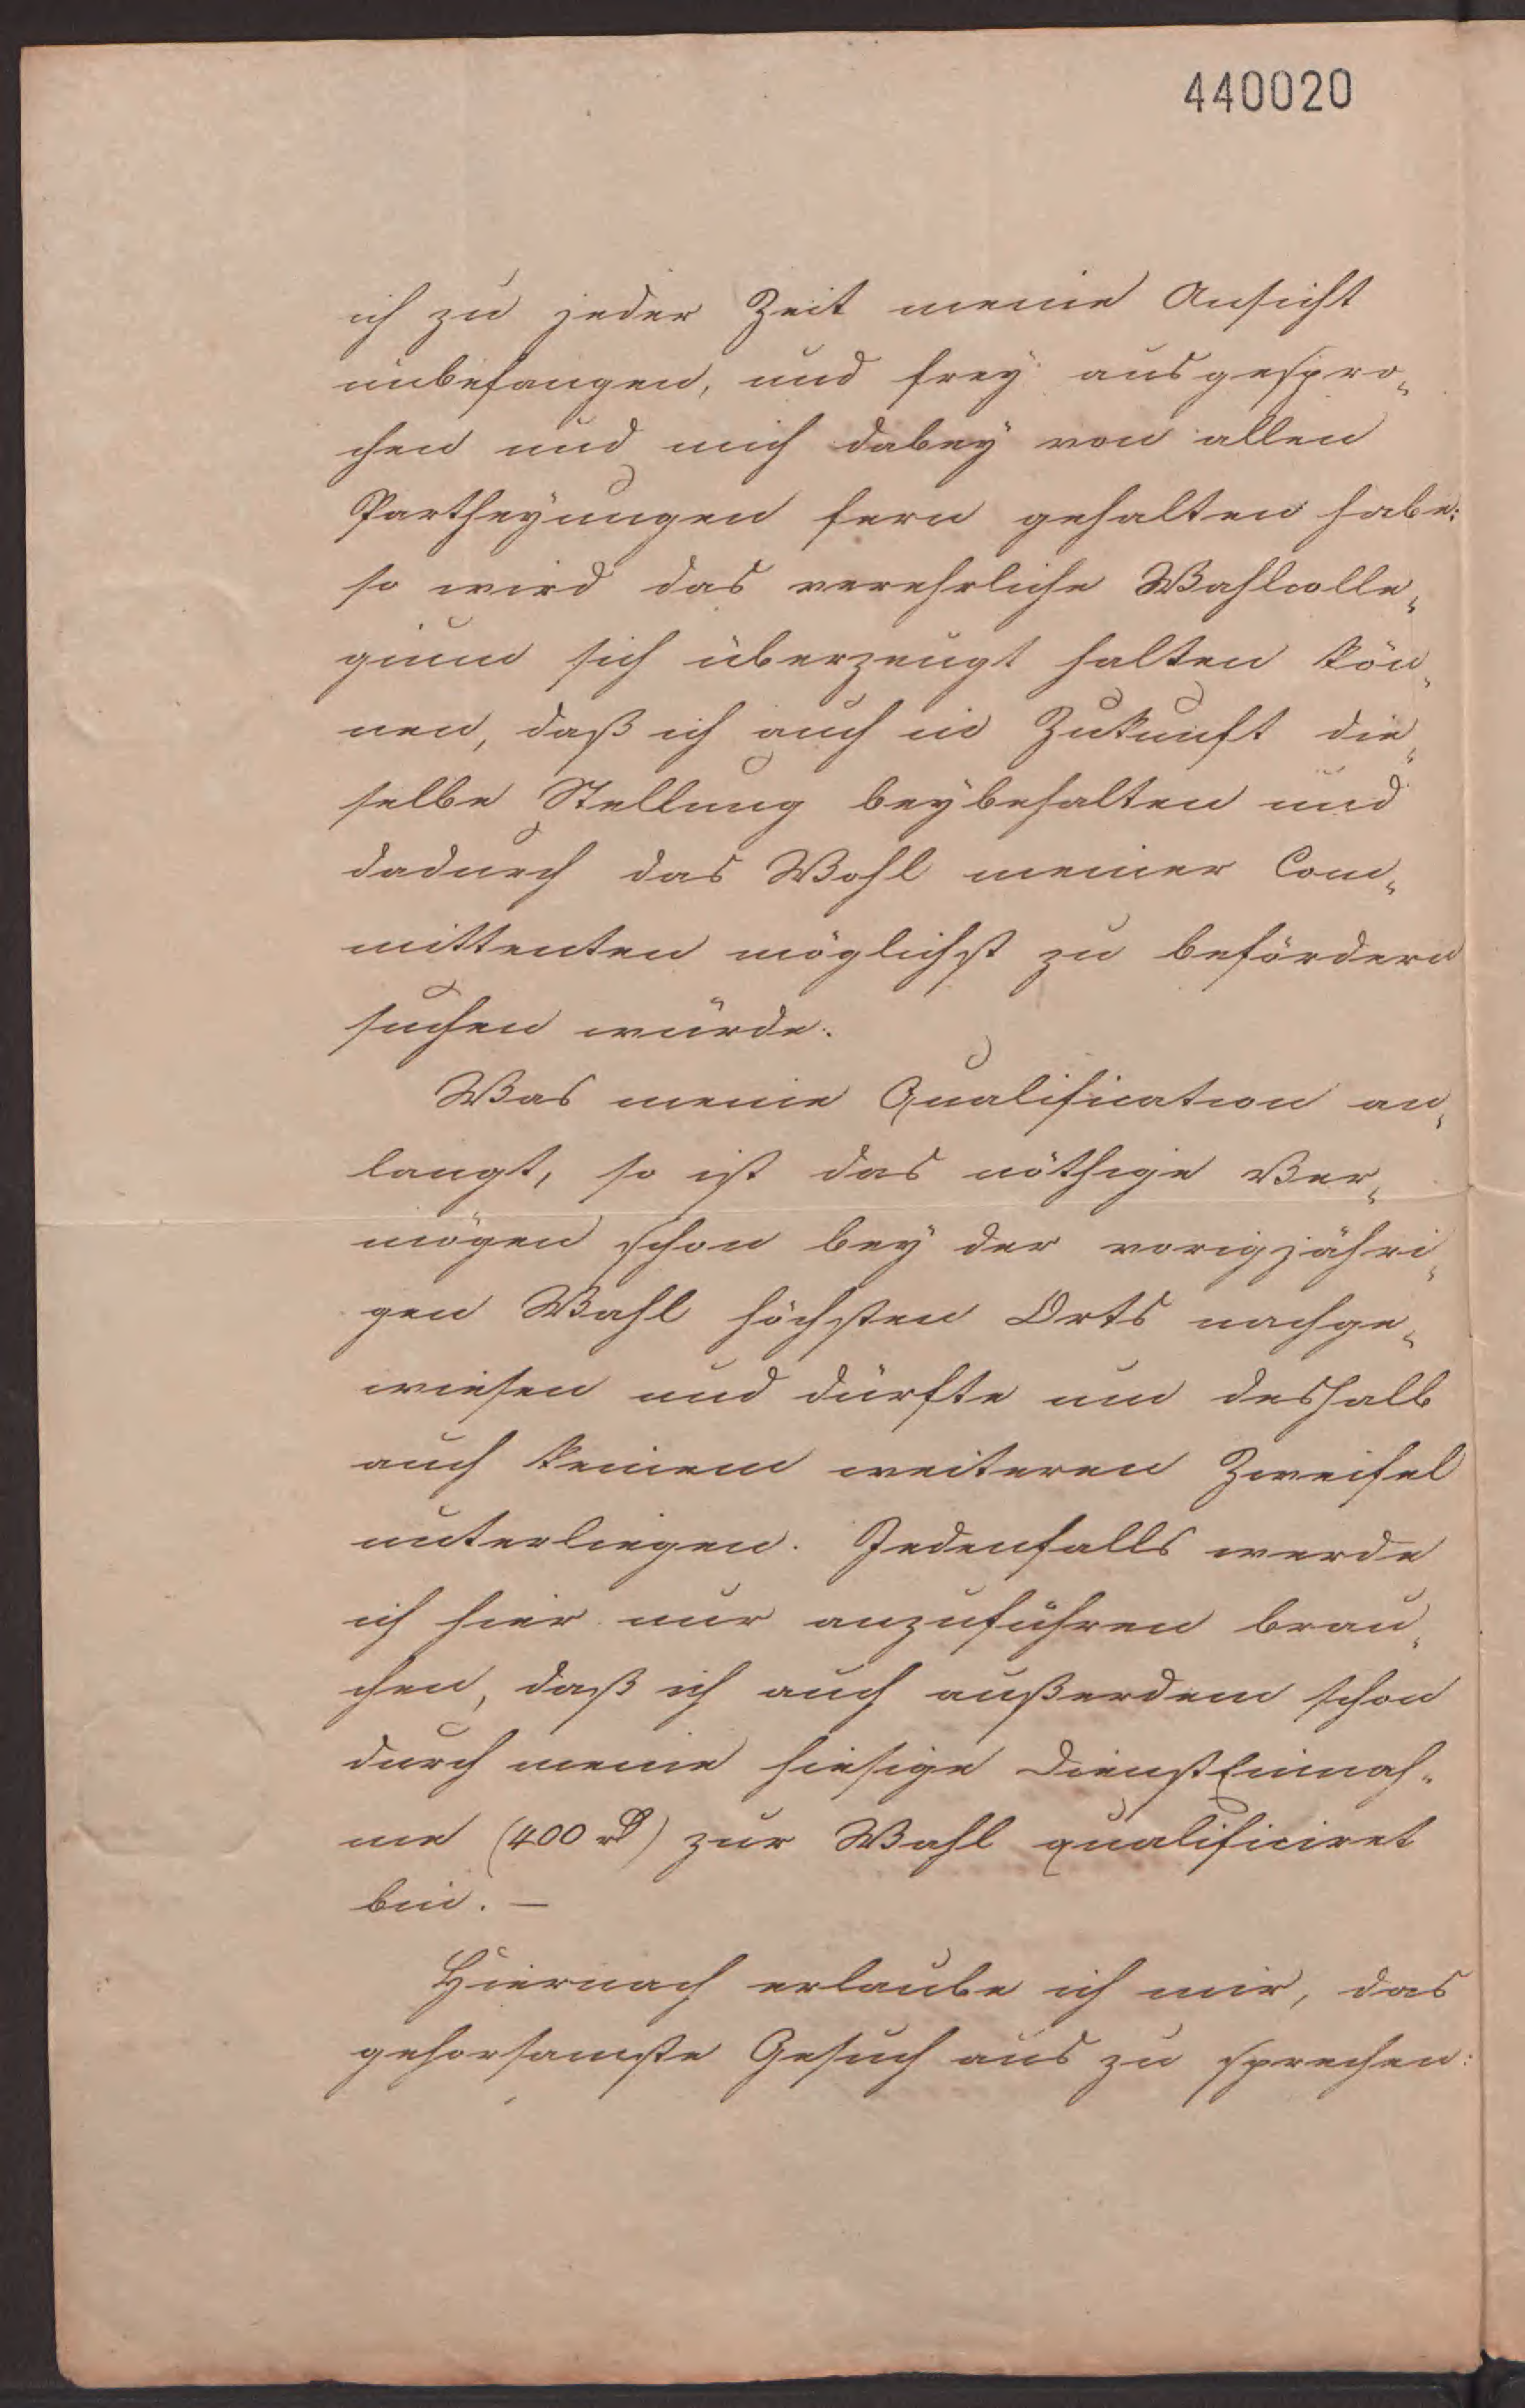 440020
ich zu jeder Zeit meine Ansicht
unbefangen, und frey ausgespro¬
chen und mich dabey von allen
Partheyungen fern gehalten habe:
so wird das verehrliche Wahlcolle¬
gium sich überzeugt halten kön¬
nen, daß ich auch in Zukunft die¬
selbe Stellung beybehalten und
dadurch das Wohl meiner Com¬
mittenten möglichst zu befördern
suchen würde.
Was meine Qualification an¬
langt, so ist das nöthige Ver¬
mögen schon bey der vorigjähri¬
gen Wahl höchsten Orts nachge¬
wiesen und dürfte um deshalb
auch keinem weiteren Zweifel
unterliegen. Jedenfalls werde
ich hier nur anzuführen brau¬
chen, daß ich auch außerdem schon
durch meine hiesige DienstEinnah¬
me (400 rℓ) zur Wahl qualificiret
bin. —
Hiernach erlaube ich mir, das
gehorsamste Gesuch aus zu sprechen: